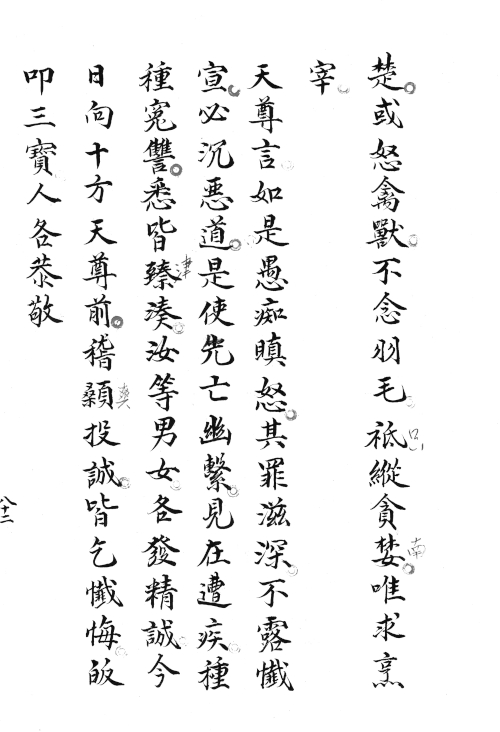 楚或怒禽獸不念羽毛祗縱貪婪唯求烹
宰
天尊言如是愚痴瞋怒其罪滋深不露懺
宣必沉惡道是使先亡幽繫見在遭疾種
種寃讐悉皆臻湊汝等男女各發精誠今
日向十方天尊前稽顙投誠皆乞懺悔皈
叩三寶人各恭敬
津
爽
南
八十二